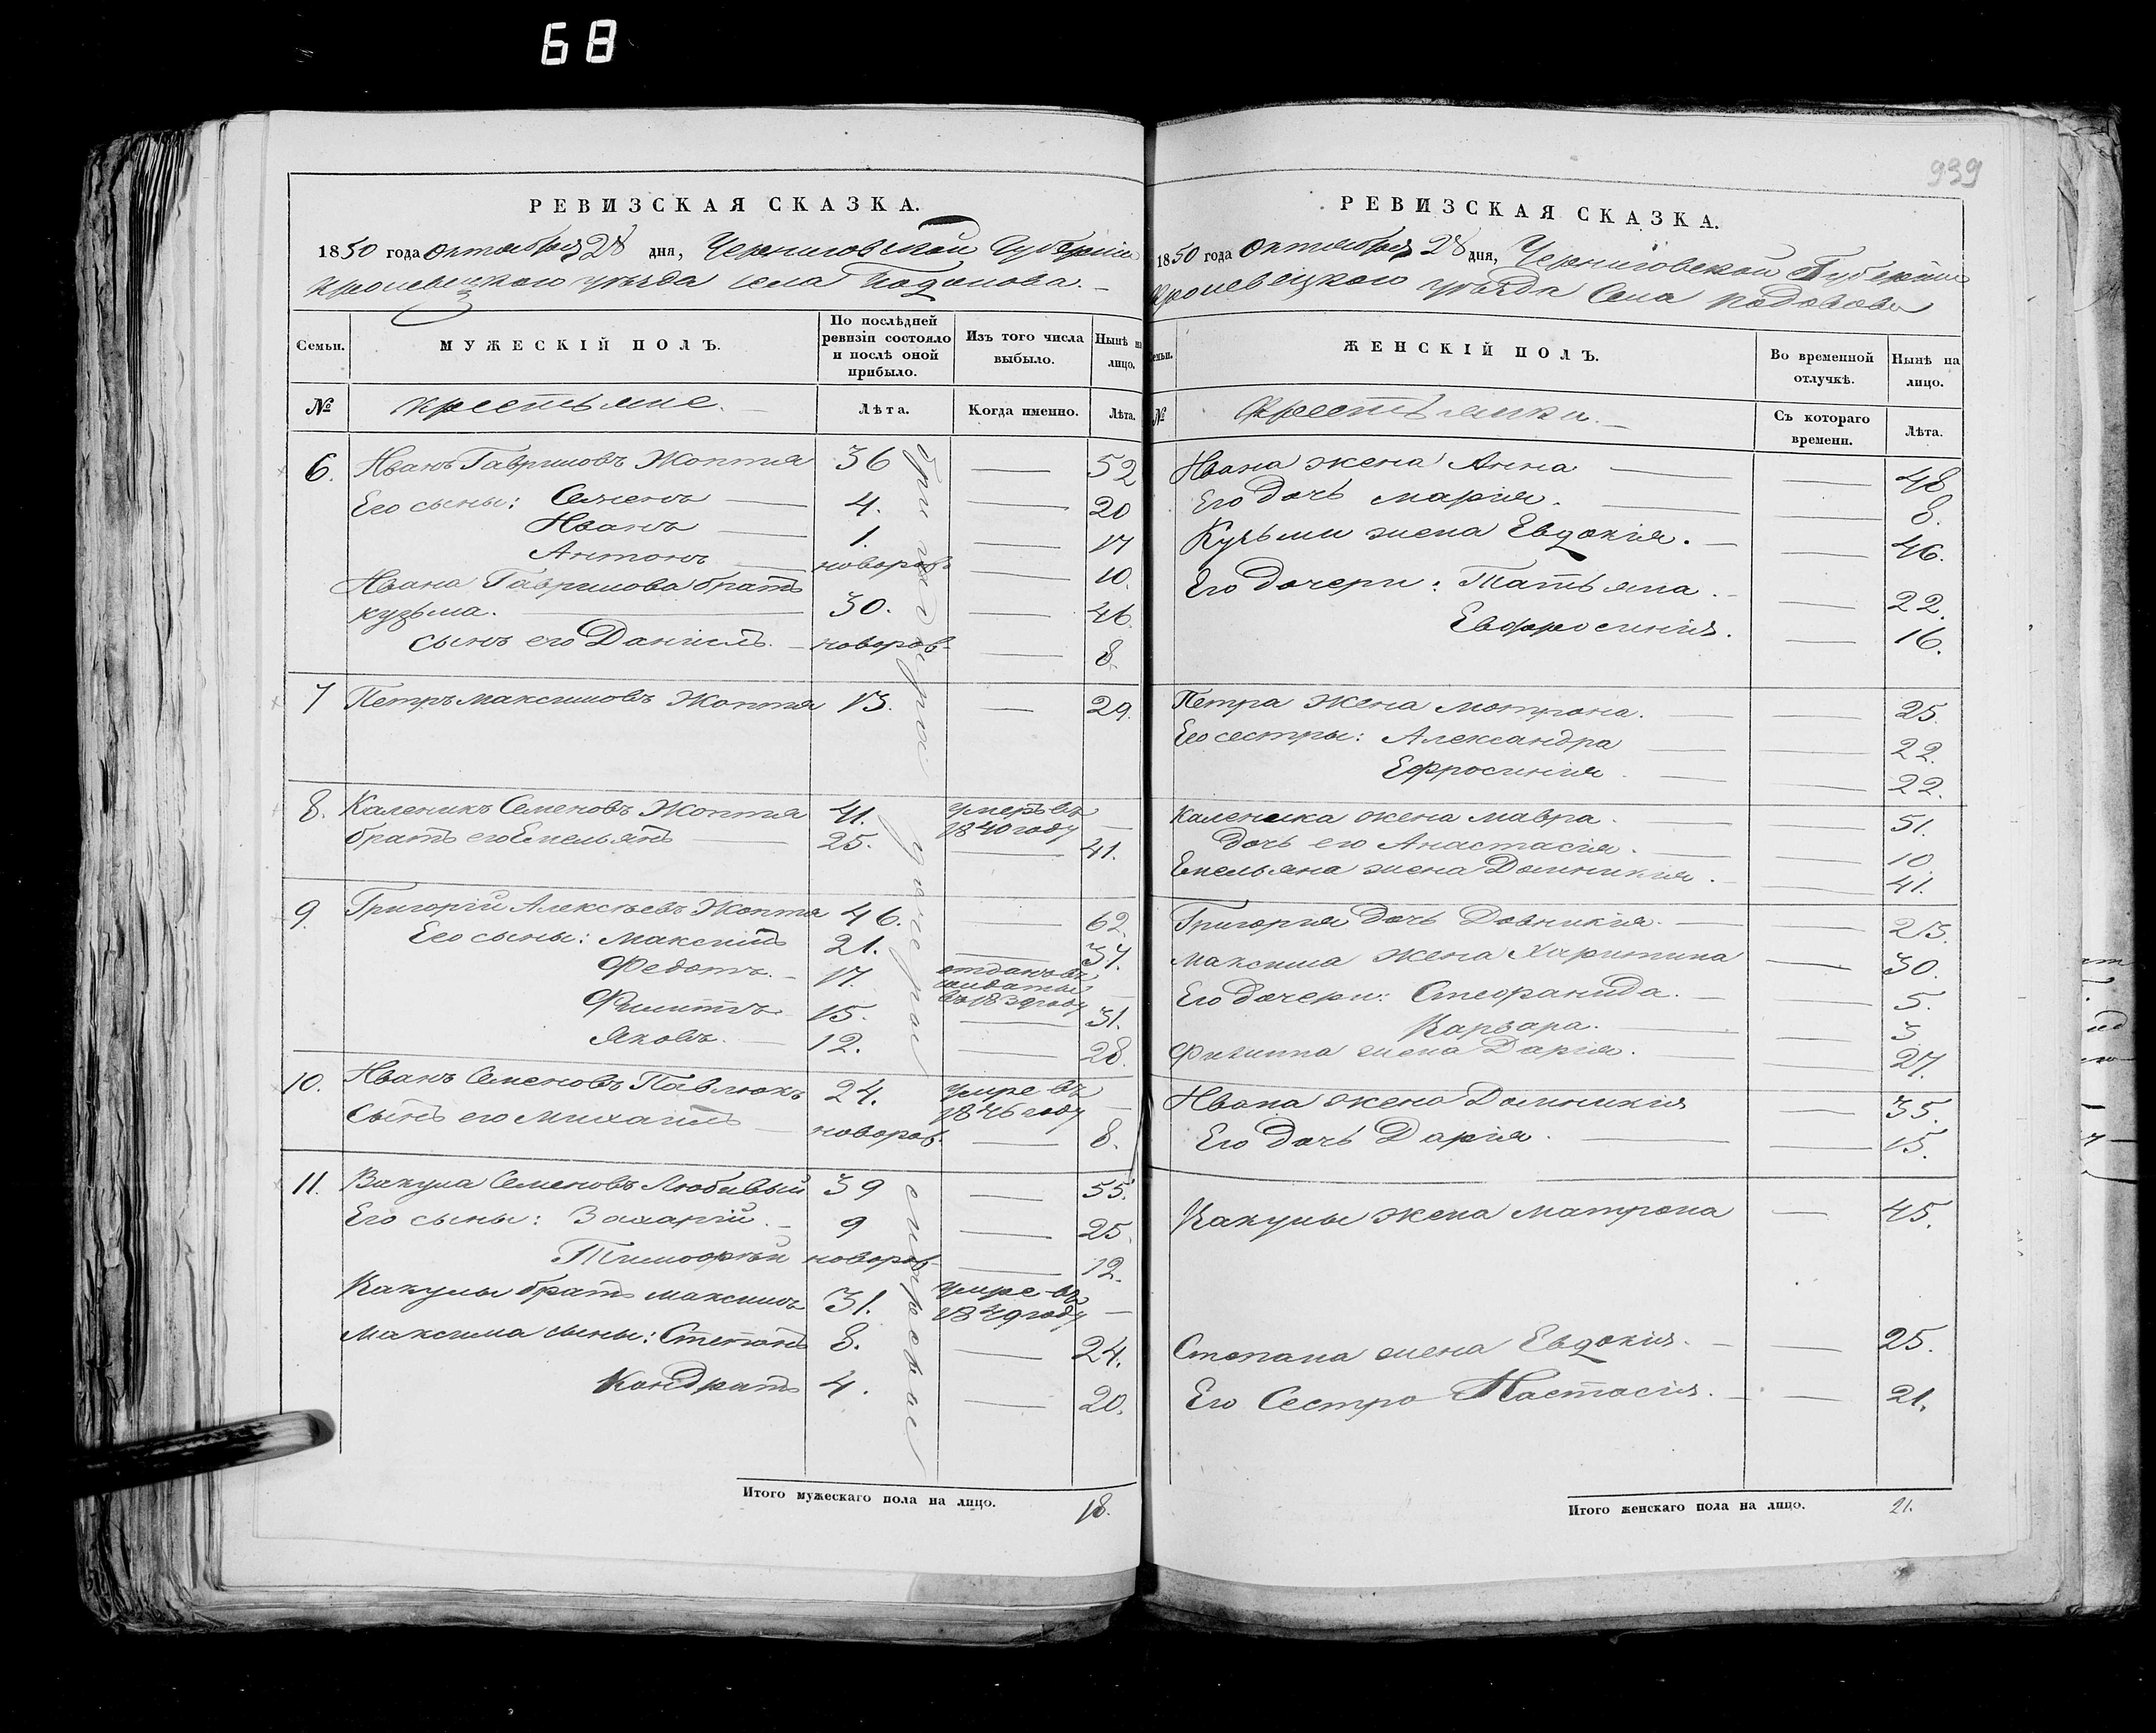 68
939
РЕВИЗСКАЯ СКАЗКА.
1850 года октября 28 дня, Черниговской Губерніи
Кролевецкого уѣзда села
Семьи.
МУЖЕСКІЙ ПОЛЪ.
По послѣдней ревизіи состояло и послѣ оной прибыло.
Изъ того числа выбыло.
Нынѣ на лицо.
№
крестьяне.
Лѣта.
Когда именно.
Лѣта.
6. Иванъ Гавриловъ Жоптя 36 — 52
Его сыны: Семенъ — 4. — 20
Иванъ — 1. — 17
Антонъ — новорож — 10.
Ивана Гаврилова братъ
кузьма. — 30. — 46.
сынъ его Даніилъ. — новорож — 8.
7 Петръ Максимовъ Жоптя 13. — 29.
8. Каленикъ Семеновъ Жоптя 41. умеръ въ 1840 году —
братъ его Емельянъ — 25. — 41.
9. Григорій Алексѣевъ Жоптя 46. — 62.
Его сыны: Максимъ 21. — 37.
Федотъ. — 17. отданъ въ солдаты въ 1839 году —
Филипъ 15. — 31.
Яковъ. — 12. — 28.
10. Иванъ Семеновъ Павлюкъ 24. умре въ 1846 году —
Сынъ его Михаилъ — новорож. — 8.
11. Вакула Семеновъ Любивый 39 — 55.
Его сыны: Захарій. — 9 — 25.
Тимофей новорож — 12.
Вакулы братъ Максимъ 31. умре въ 1849 году —
Максима сыны: Степанъ 8. — 24.
Кондратъ 4. — 20.
Итого мужескаго пола на лицо. 18.
РЕВИЗСКАЯ СКАЗКА.
1850 года Октября 28 дня, Черниговской Губерніи
Кролевецкого уѣзда Села
Семьи.
ЖЕНСКІЙ ПОЛЪ.
Во временной отлучкѣ.
Нынѣ на лицо.
№
Крестьянки. —
Съ котораго времени.
Лѣта.
Ивана жена Анна — — 48
Его дочь Марія. — — 8.
Кузьмы жена Евдокія. — — 46.
Его дочери: Татьяна. — — 22.
Евфросинія. — 16.
Петра жена Мотрона. — — 25.
Его сестры: Александра — — 22.
Ефросинія. — — 22.
Каленика жена Мавра. — — 51.
дочь его Анастасія. — — 10
Емельяна жена Домникія. — 41.
Григорія дочь Довникія. — — 23.
Максима жена Харитина — 30.
Его дочери: Стефанида. — — 5.
Варвара. — — 3
Филиппа жена Дарія. — 27.
Ивана жена Домникія — 35.
Его дочь Дарія. — — 15.
Вакулы жена Матрона — 45.
Степана жена Евдокія. — — 25.
Его Сестра Настасія. — — 21.
Итого женскаго пола на лицо. 21.